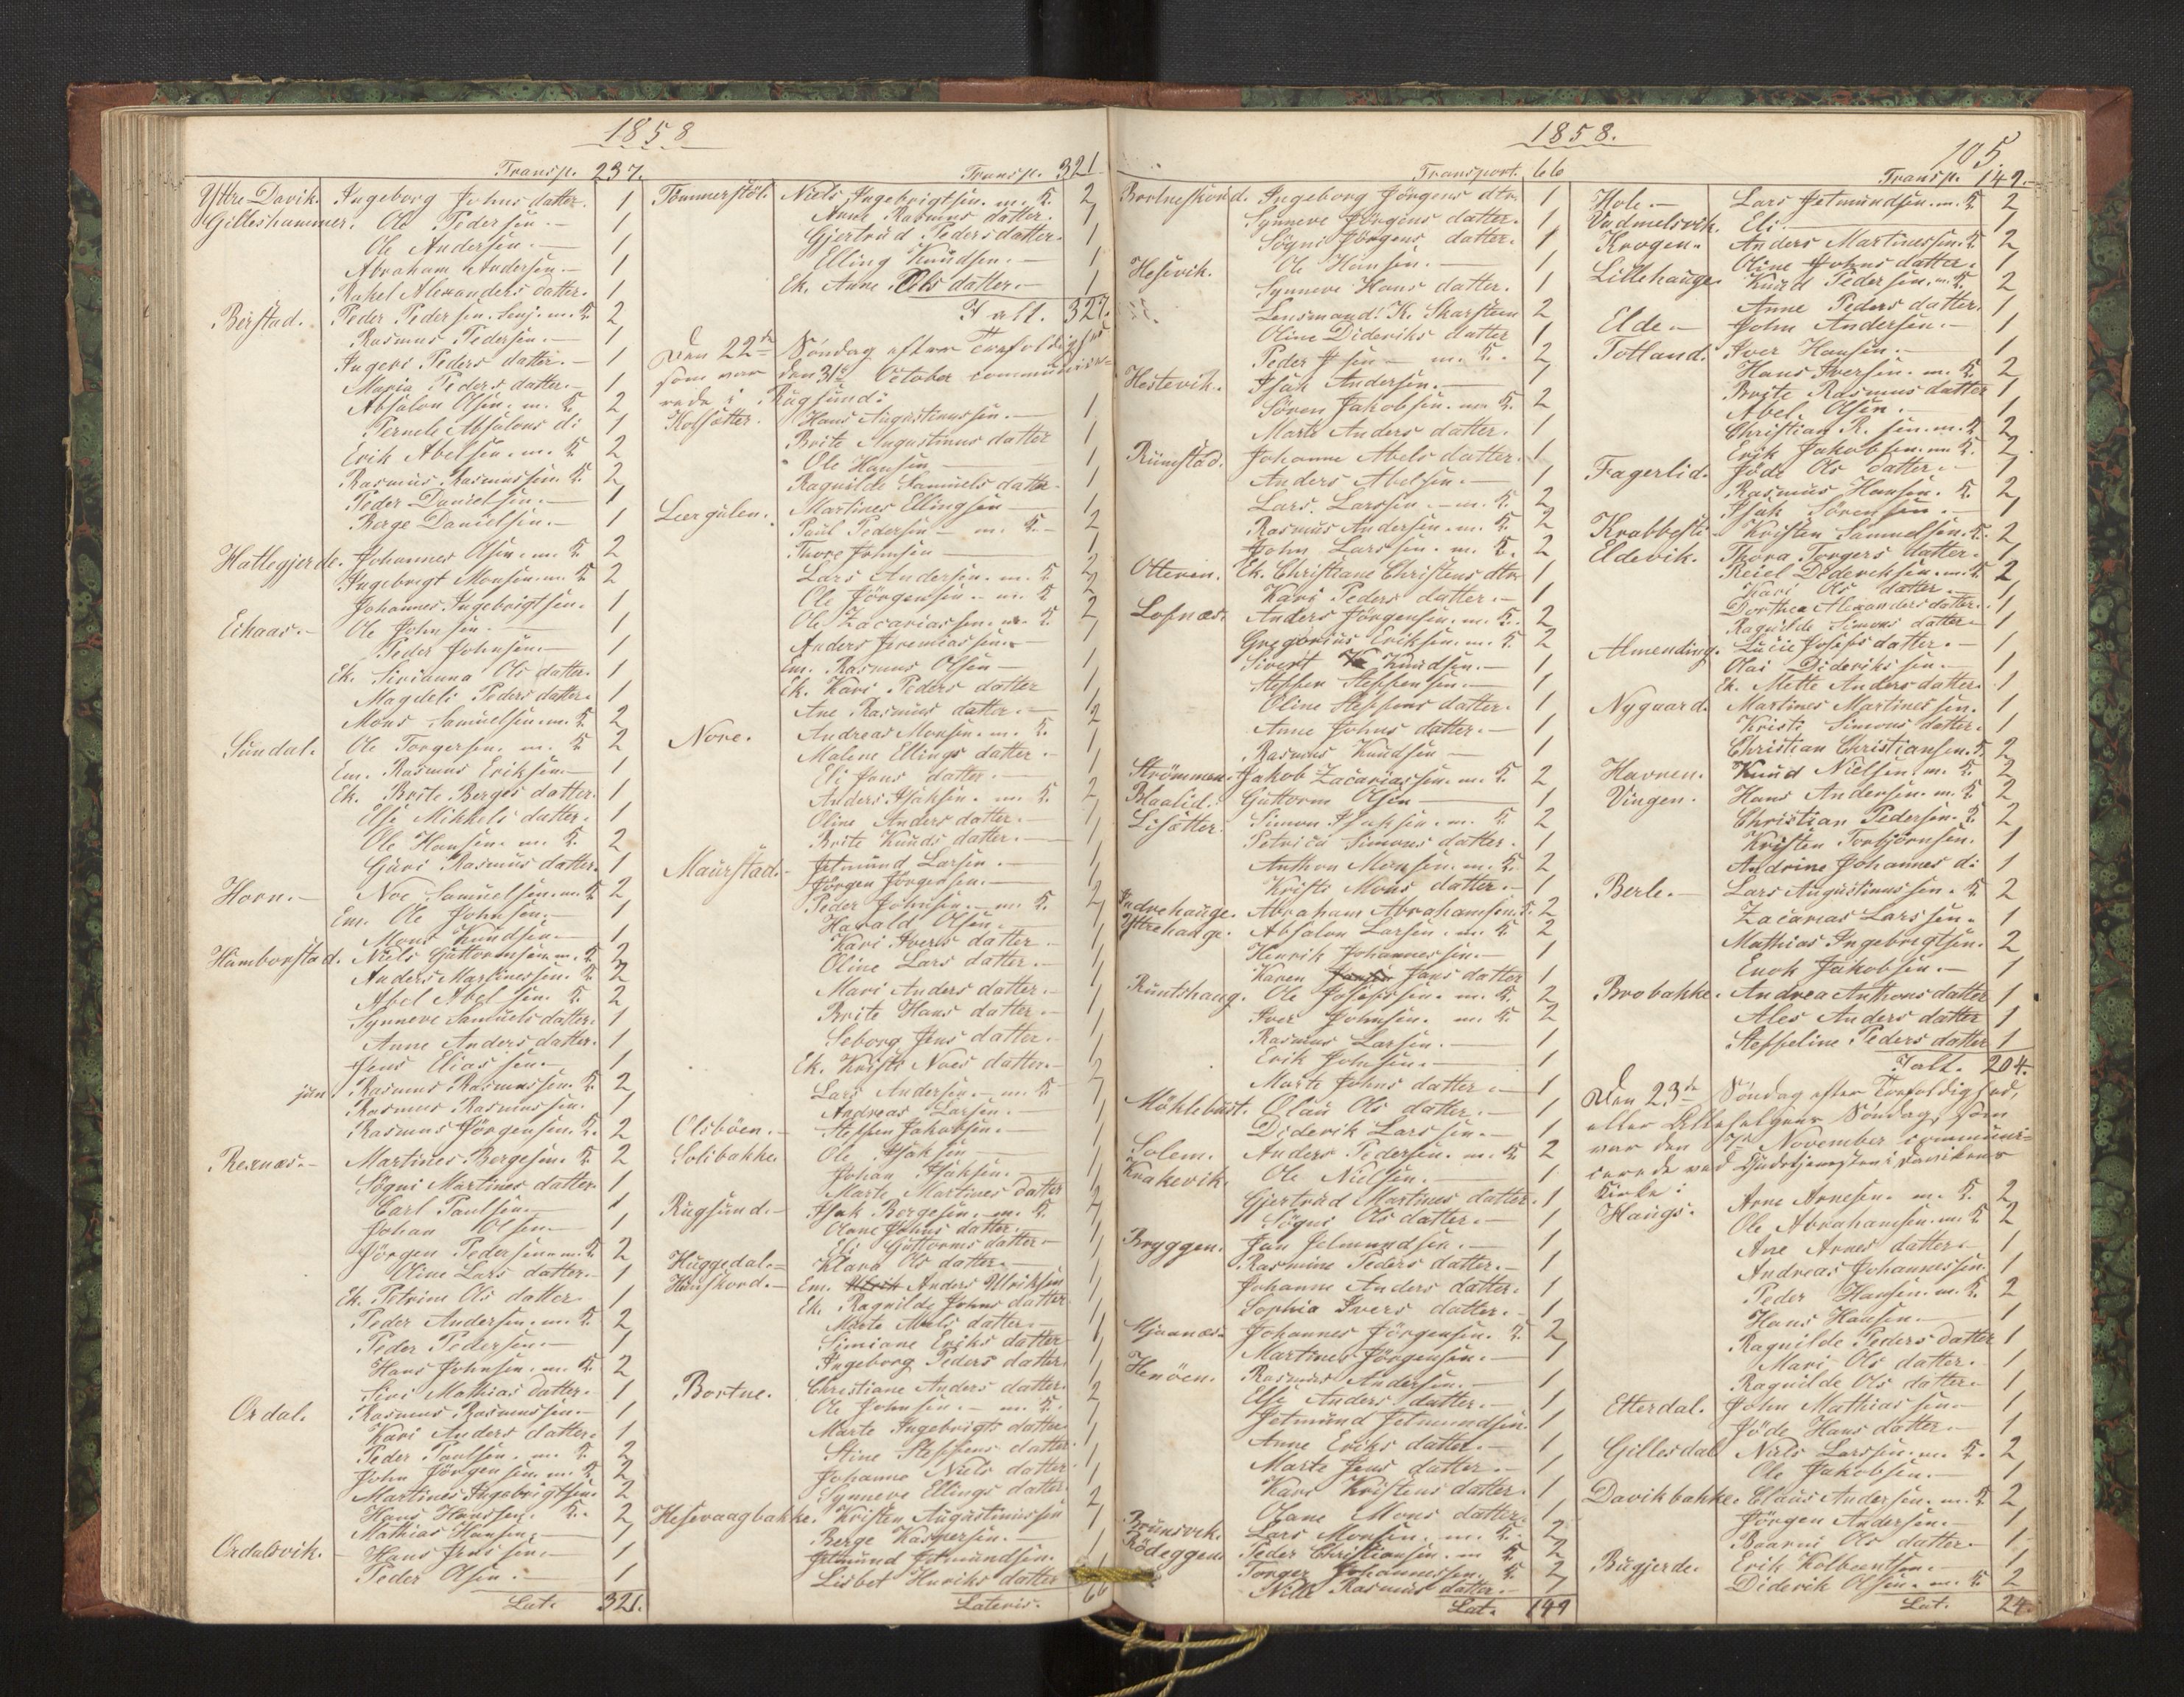 1858
Transp. 237.
Yttre Davik. Ingeborg Johns datter. 1
Gilleshammer. Ole Pedersen. — 1
Ole Andersen. — 1
Abraham Andersen. — 1
Rakel Alexanders datter. 1
Birstad. Peder Pedersen. Senj. m. K. 2
Rasmus Pedersen. — 1
Ingeri Peders datter. — 1
Maria Peders datter. — 1
Absalon Olsen. m. K. 2
Pernele Absalons d: 1
Erik Abelsen. m. K 2
Rasmus Rasmussen. K. 2
Peder Danielsen. — 1
Berge Danielsen. — 1
Hattegjerde. Johannes Olsen. m. K 2
Ingebrigt Monsen. m. K 2
Johannes Ingebrigtsen. 1
Eihaas. — Ole Johnsen. — 1
Peder Johnsen. — 1
Ek. Sirianna Ols datter. 1
Magdeli Peders datter. 1
Mons Samuelsen. m. K. 2
Sundal. Ole Torgersen. m. K 2
Em. Rasmus Eriksen. — 1
Ek. Brite Berges datter. 1
Else Mikkels datter. 1
Ole Hansen. m. K. 2
Guri Rasmus datter. 1
Horn. — Noe Samuelsen. m. K 2
Em. Ole Johnsen. — 1
Mons Knudsen. — 1
Hamborstad. Niels Guttormsen. m. K 2
Anders Martinessen. K 2
Abel Abelsen. K 2
Synneve Samuels datter. 1
Anne Anders datter. 1
Jens Eliassen. — 1
jun Rasmus Rasmussen. K. 2
Rasmus Rasmussen. 1
Rasmus Jörgensen. K. 2
Rexnæs. — Martines Bergesen. K 2
Sögni Martines datter. 1
Carl Paulsen. — 1
Johan Olsen — 1
Jörgen Pedersen. m. K 2
Oline Lars datter. — 1
Ek. Petrine Ols datter. 1
Peder Andersen. m. K. 2
Peder Pedersen. — 1
Hans Johnsen. m. K. 2
Siri Mathias datter. 1
Ordal. Rasmus Rasmussen. — 1
Kari Anders datter. 1
Peder Paulsen. m. K. 2
John Jörgensen. m. K 2
Martines Ingebrigtsen. 2
Hans Hanssen. K. 2
Mathias Hansen. — 1
Ordalsvik. Hans Jenssen. — 1
Peder Olsen. — 1
Lat. 321.
Transp. 321
Tömmerstöl. Niels Ingebrigtsen. m. K. 2
Anne Rasmus datter. 1
Gjertrud Peders datter. 1
Elling Knudsen. — 1
Ek. Anne Ols datter. — 1
I alt. 327.
Den 22de Söndag efter Trefoldighed
som var den 31te October communice=
rede i Rugsund:
Kolsætter. Hans Augustinussen. — 1
Brite Augustinus datter 1
Ole Hansen — 1
Ragnilde Samuels datter 1
Leergulen. Martines Ellingsen — 1
Paul Pedersen — m. K. — 2
Thore Johnsen — 1
Lars Andersen. m. K. 2
Ole Jörgensen. — m. K 2
Ole Zacariassen. m. K. 2
Anders Jeremiassen — 1
Em. Rasmus Olsen — 1
Ek. Kari Peders datter 1
Ane Rasmus datter. — 1
Nore. Andreas Monsen. m. K. 2
Malene Ellings datter. — 1
Eli Jens datter. — 1
Anders Isaksen. m. K. 2
Oline Anders datter. — 1
Brite Knuds datter. — 1
Maurstad. — Jetmund Larsen. — 1
Jörgen Jörgensen. — 1
Peder Johnsen. — m. K. 2
Harald Olsen. — 1
Kari Ivers datter. — 1
Oline Lars datter. — 1
Mari Anders datter. — 1
Brite Hans datter. — 1
Seborg Jens datter. — 1
Ek. Kristi Noes datter. — 1
Lars Andersen. — m. K 2
Andreas Larsen. — 1
Olsböen. — Steffen Jakobsen. — 1
Solibakke. Ole Isaksen — 1
Johan Isaksen. — 1
Marte Martines datter 1
Rugsund. — Isak Bergesen. — m. K. 2
Olane Johns datter. — 1
Eli Guttorms datter — 1
Huggedal. — Klara Ols datter. — 1
Hauskord. — Em. Anders Ulriksen 1
Ek. Ragnilde Johns datter 1
Marte Abels datter. — 1
Simiane Eriks datter 1
Ingeborg Peders datter 1
Bortne. Christiane Anders datter. 1
Ole Johnsen. — m. K. 2
Marte Ingebrigts datter 1
Stine Steffens datter. 1
Johanne Niels datter 1
Synneve Ellings datter. 1
Hesevaagbakke. Kristen Augustinussen 2
Berge Kaspersen. — 1
Jetmund Jetmundsen. 1
Lisbet Henriks datter 1
Lateris. 66
1858.
105.
Transport. 66
Bortneskord. Ingeborg Jörgens dtr. 1
Synneve Jörgens datter. 1
Sögni Jörgens datter. 1
Hesevik. Ole Hansen. — 1
Synneve Hans datter. 1
Lensmand: K. Skarsteen 2
Oline Dideriks datter 1
Peder J. sen — m. K. 2
Hestevik. Isak Andersen. — 1
Sören Jakobsen. m. K. 2
Marte Anders datter. 1
Rumstad. Johanne Abels datter. 1
Anders Abelsen. — 1
Lars. Larssen. — m. K. 2
Rasmus Andersen. m. K. 2
John Larssen. m. K. 2
Otteren. Ek. Christiane Christens dtr 1
Kari Peders datter. — 1
Lofnæs. Anders Jörgensen. m. K. 2
Gregorius Eriksen. m. K 2
Sivert Knudsen. — 1
Steffen Steffensen. — 1
Oline Steffens datter. 1
Anne Johns datter. — 1
Rasmus Knudsen — 1
Strömmen. Jakob Zacariassen. m. K. 2
Blaalid. Guttorm Olsen — 1
Lisætter. Simon Isaksen. m. K. 2
Petrica Simons datter. 1
Anthon Monsen. m. K. 2
Kristi Mons datter. — 1
Indrehauge. Abraham Abrahamsen. K. 2
Yttrehauge. Absalon Larsen. m. K 2
Henrik Johannessen 1
Karen Jans datter 1
Runtshaug. Ole Josefssen. m. K. 2
Iver Johnsen. m. K. 2
Rasmus Larsen. — 1
Erik Johnsen. — 1
Marte Johns datter. — 1
Möhlebust. Olau Ols datter. — 1
Diderik Larssen. — 1
Solem. Anders Pedersen. m. K. 2
Krakevik. Ole Nielsen. — 1
Gjertrud Martines datter. 1
Sögni Ols datter. — 1
Bryggen. Jan Jetmundsen. — 1
Rasmine Peders datter. — 1
Johanne Anders datter. 1
Sophia Ivers datter. — 1
Mjaanæs. Johannes Jörgensen. K. 2
Martines Jörgensen. — 1
Henöen. Rasmus Andersen. — 1
Else Anders datter. — 1
Jetmund Jetmundsen. 1
Anne Eriks datter. — 1
Marte Jens datter. — 1
Kari Kristens datter. 1
Olane Mons datter. 1
Brunsvik. Lars Monsen. m. K. 2
Rödeggen. Peder Christiansen. m K 2
Torger Johannessen. K. 2
Nille Rasmus datter. — 1
Lat. 149
Transp. 149. —
Hole. — Lars Jetmundsen. m. K 2
Vadmelsvik. Eli — 1
Krogen. Anders Martinessen. K. 2
Oline Johns datter. 1
Lillehauge. Knud Pedersen. m. K. 2
Anne Peders datter. 1
Elde. — John Andersen. — 1
Totland. Iver Hansen. — 1
Hans Iversen. m. K 2
Brite Rasmus datter 1
Abel Olsen. — 1
Christian R. sen. m. K 2
Erik Jakobsen. m K. 2
Fagerlid. Jöde Ols datter. — 1
Rasmus Hansen. K. 2
Isak Sörensen. — 1
Krabbesti. Kristen Samuelsen. K. 2
Eldevik. Thora Torgers datter. 1
Reiel Dideriksen. m. K 2
Kari Ols datter. — 1
Dorthea Alexanders datter. 1
Ragnilde Simons datter — 1
Almending. Lucie Josefs datter. — 1
Olai Dideriksen. — 1
Ek. Mette Anders datter. 1
Nygaard. Martines Martinessen. 1
Kristi Simons datter. 1
Christian Christiansen. K 2
Havnen. Knud Nielsen. m. K. 2
Vingen. Hans Andersen. m. K 2
Christian Pedersen. K 2
Kristen Torbjörnsen. 1
Andrine Johannes d: 1
Berle. — Lars Augustinussen. K 2
Zacarias Larssen. 1
Mathias Ingebrigtsen. 2
Enok Jakobsen. — 1
Brobakke. Andrea Anthons datter 1
Ales Anders datter 1
Steffeline Peders datter 1
I alt. 204.
Den 23de Söndag efter Trefoldighed,
eller Allehelgens Söndag, som
var den 7de November communi=
cerede ved Gudstjenesten i Davikens
Kirke:
Haugs. Arne Arnesen. m. K. 2
Ole Abrahamsen. m. K 2
Ane Arnes datter. 1
Andreas Johannessen. 1
Peder Hansen. m. K. 2
Hans Hansen. — 1
Ragnilde Peders datter 1
Mari Ols datter. 1
Ragnilde Ols datter. 1
Etterdal. John Mathiassen 1
Jöde Hans datter. — 1
Gillesdal Niels Larssen. m. K. 2
Ole Jakobsen. — 1
Davikbakke. Claus Andersen. m. K 2
Jörgen Andersen. — 1
Baarni Ols datter. — 1
Bugjerde. Erik Kolbentsen. — 1
Diderik Olsen. m. K. 2
Lat. 24.